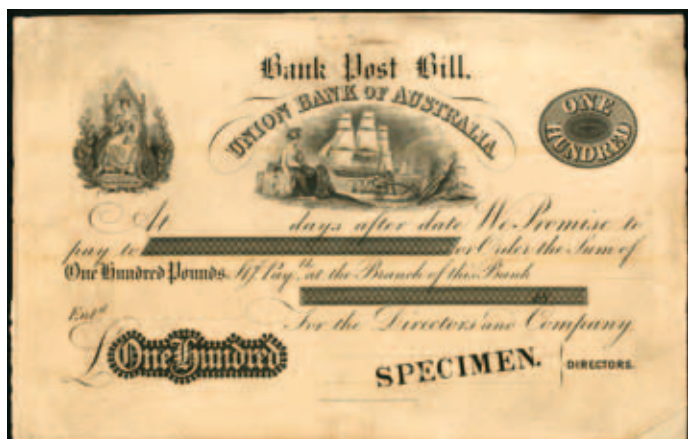 Bank Post Bill.
UNION BANK OF AUSTRALIA.
ONE HUNDRED
At days after date We Promise to
pay to or Order the Sum of
One Hundred Pounds at the Branch of this Bank
18
Ent.d
For the Directors and Company.
£ One Hundred
SPECIMEN.
DIRECTORS.